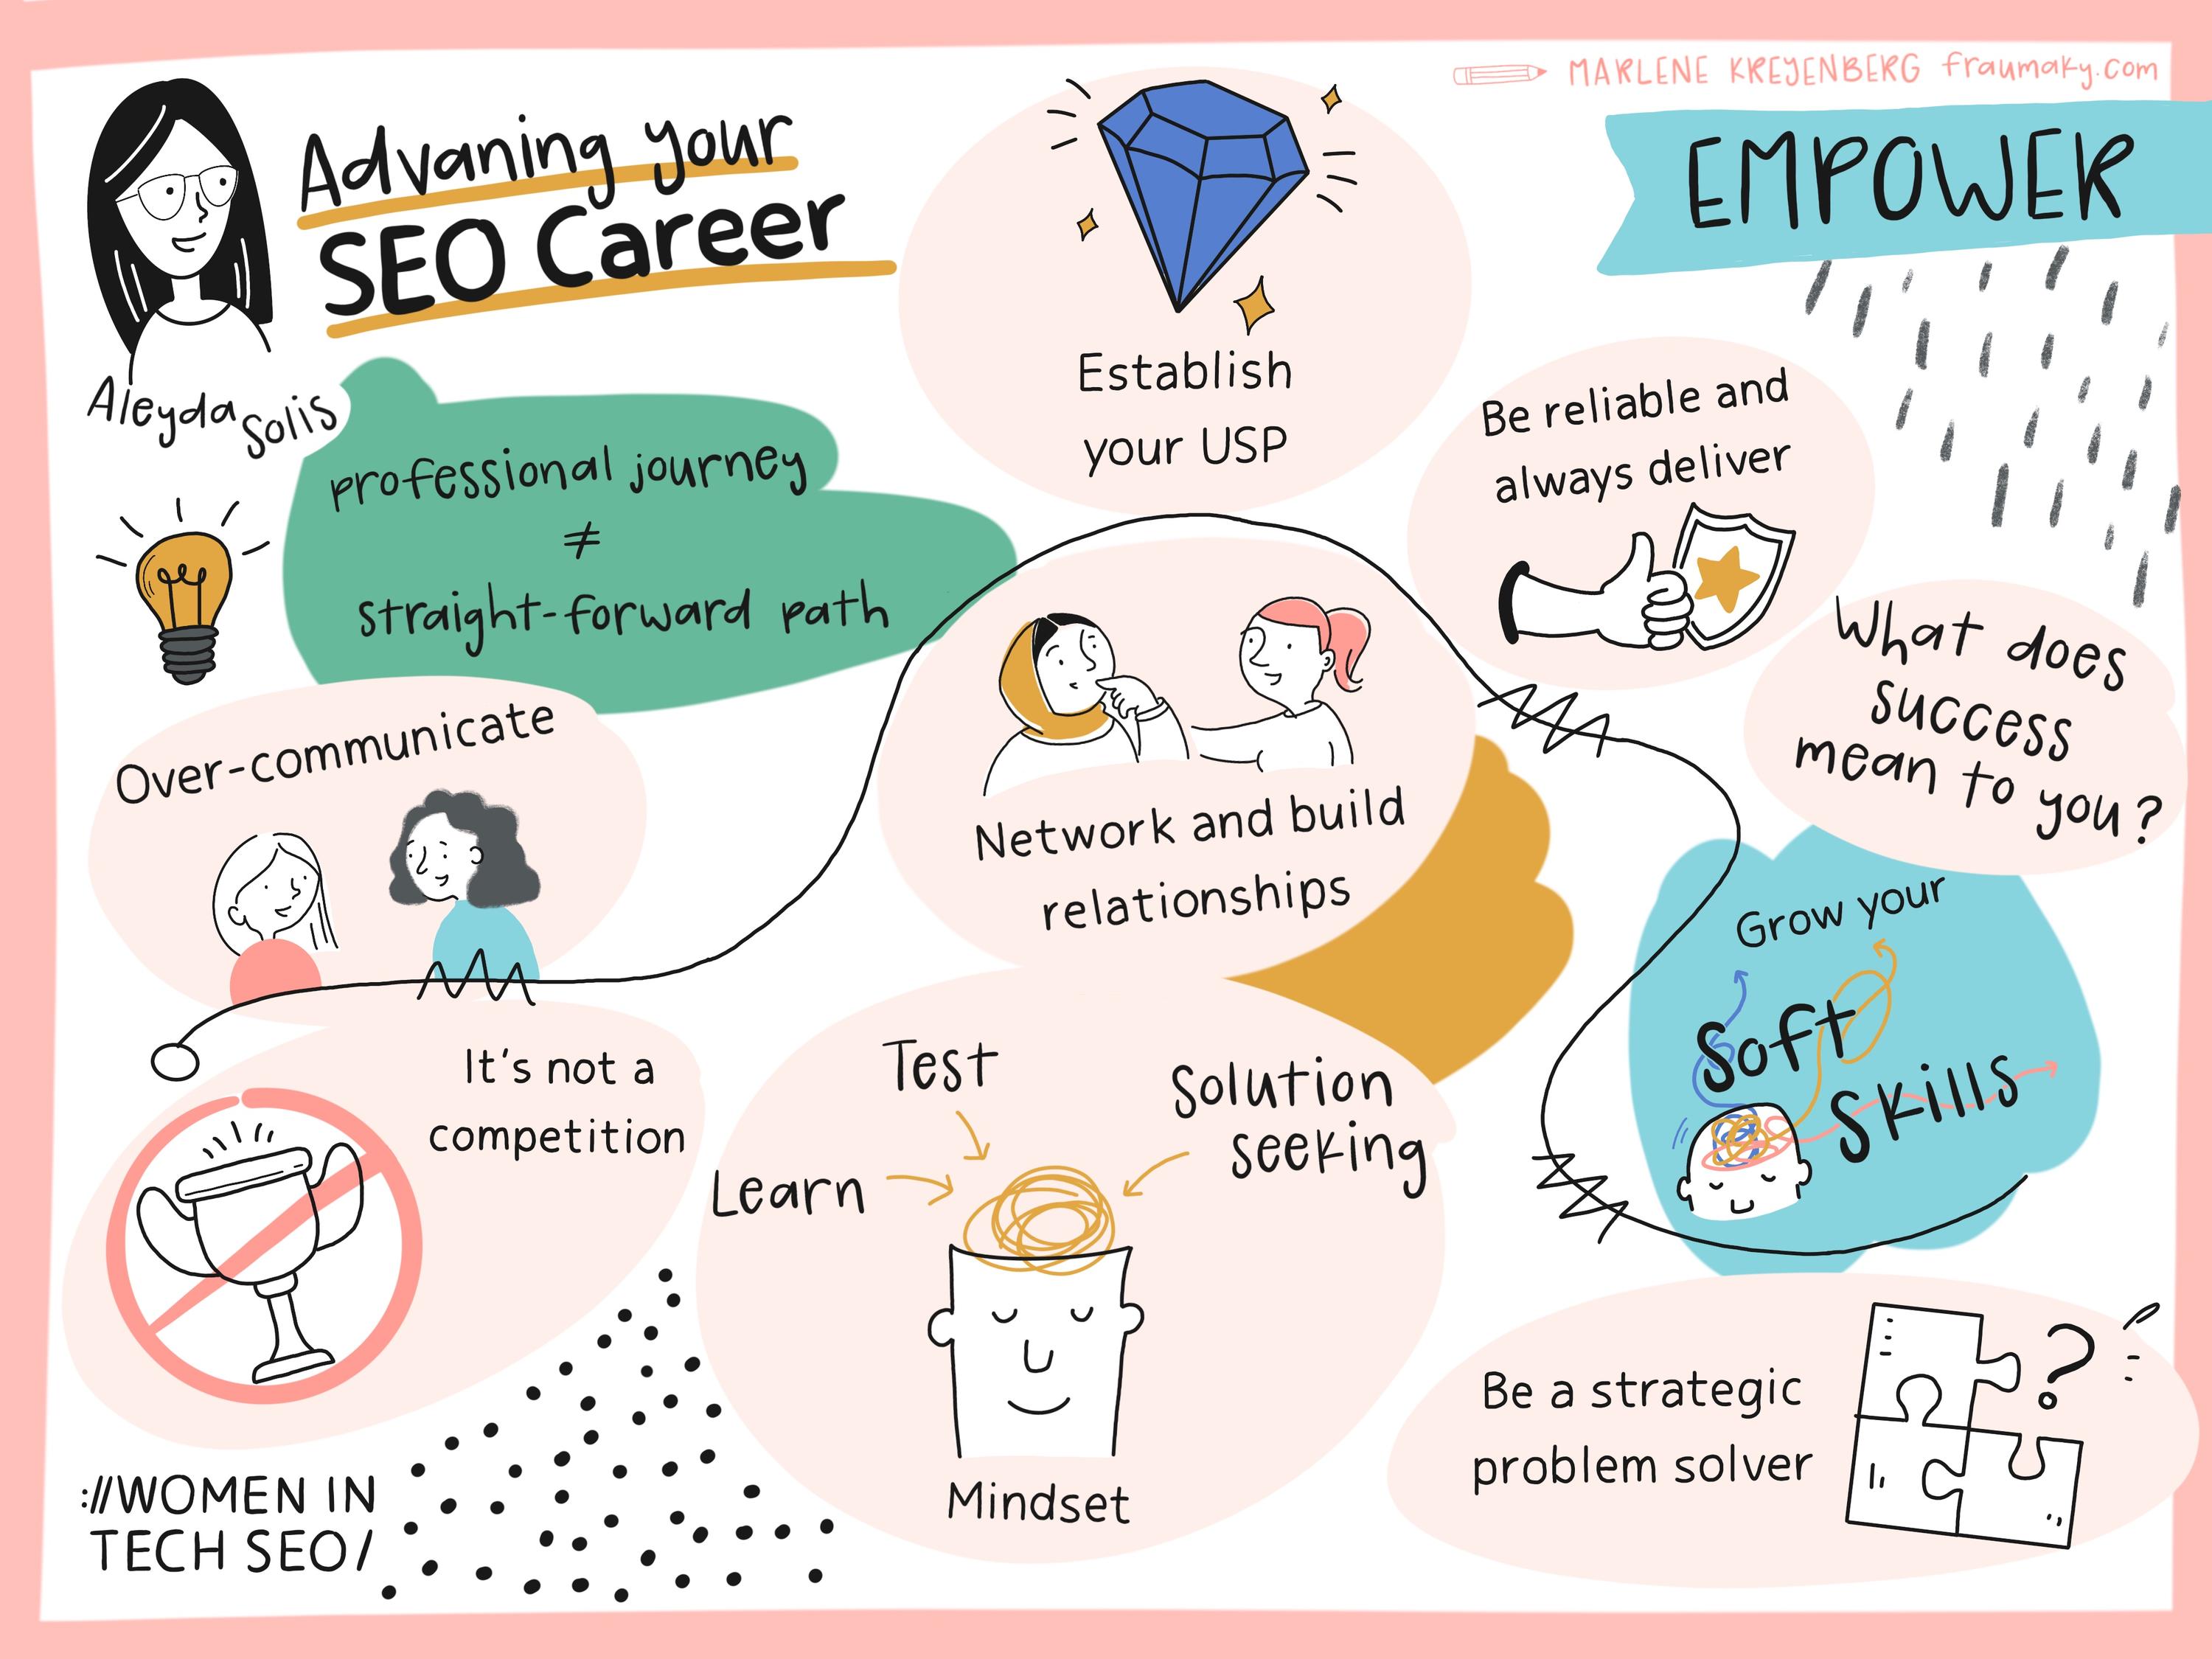 MARLENE KREYENBERG fraumaky.com
Advaning your
SEO Career
EMPOWER
Aleyda Solis
professional journey
≠
straight-forward path
Establish
your USP
Be reliable and
always deliver
What does
success
mean to you?
Over-communicate
Network and build
relationships
Grow your
Soft
Skills
It's not a
competition
Test
Solution
seeking
Learn
Mindset
Be a strategic
problem solver
?
://WOMEN IN
TECH SEO/